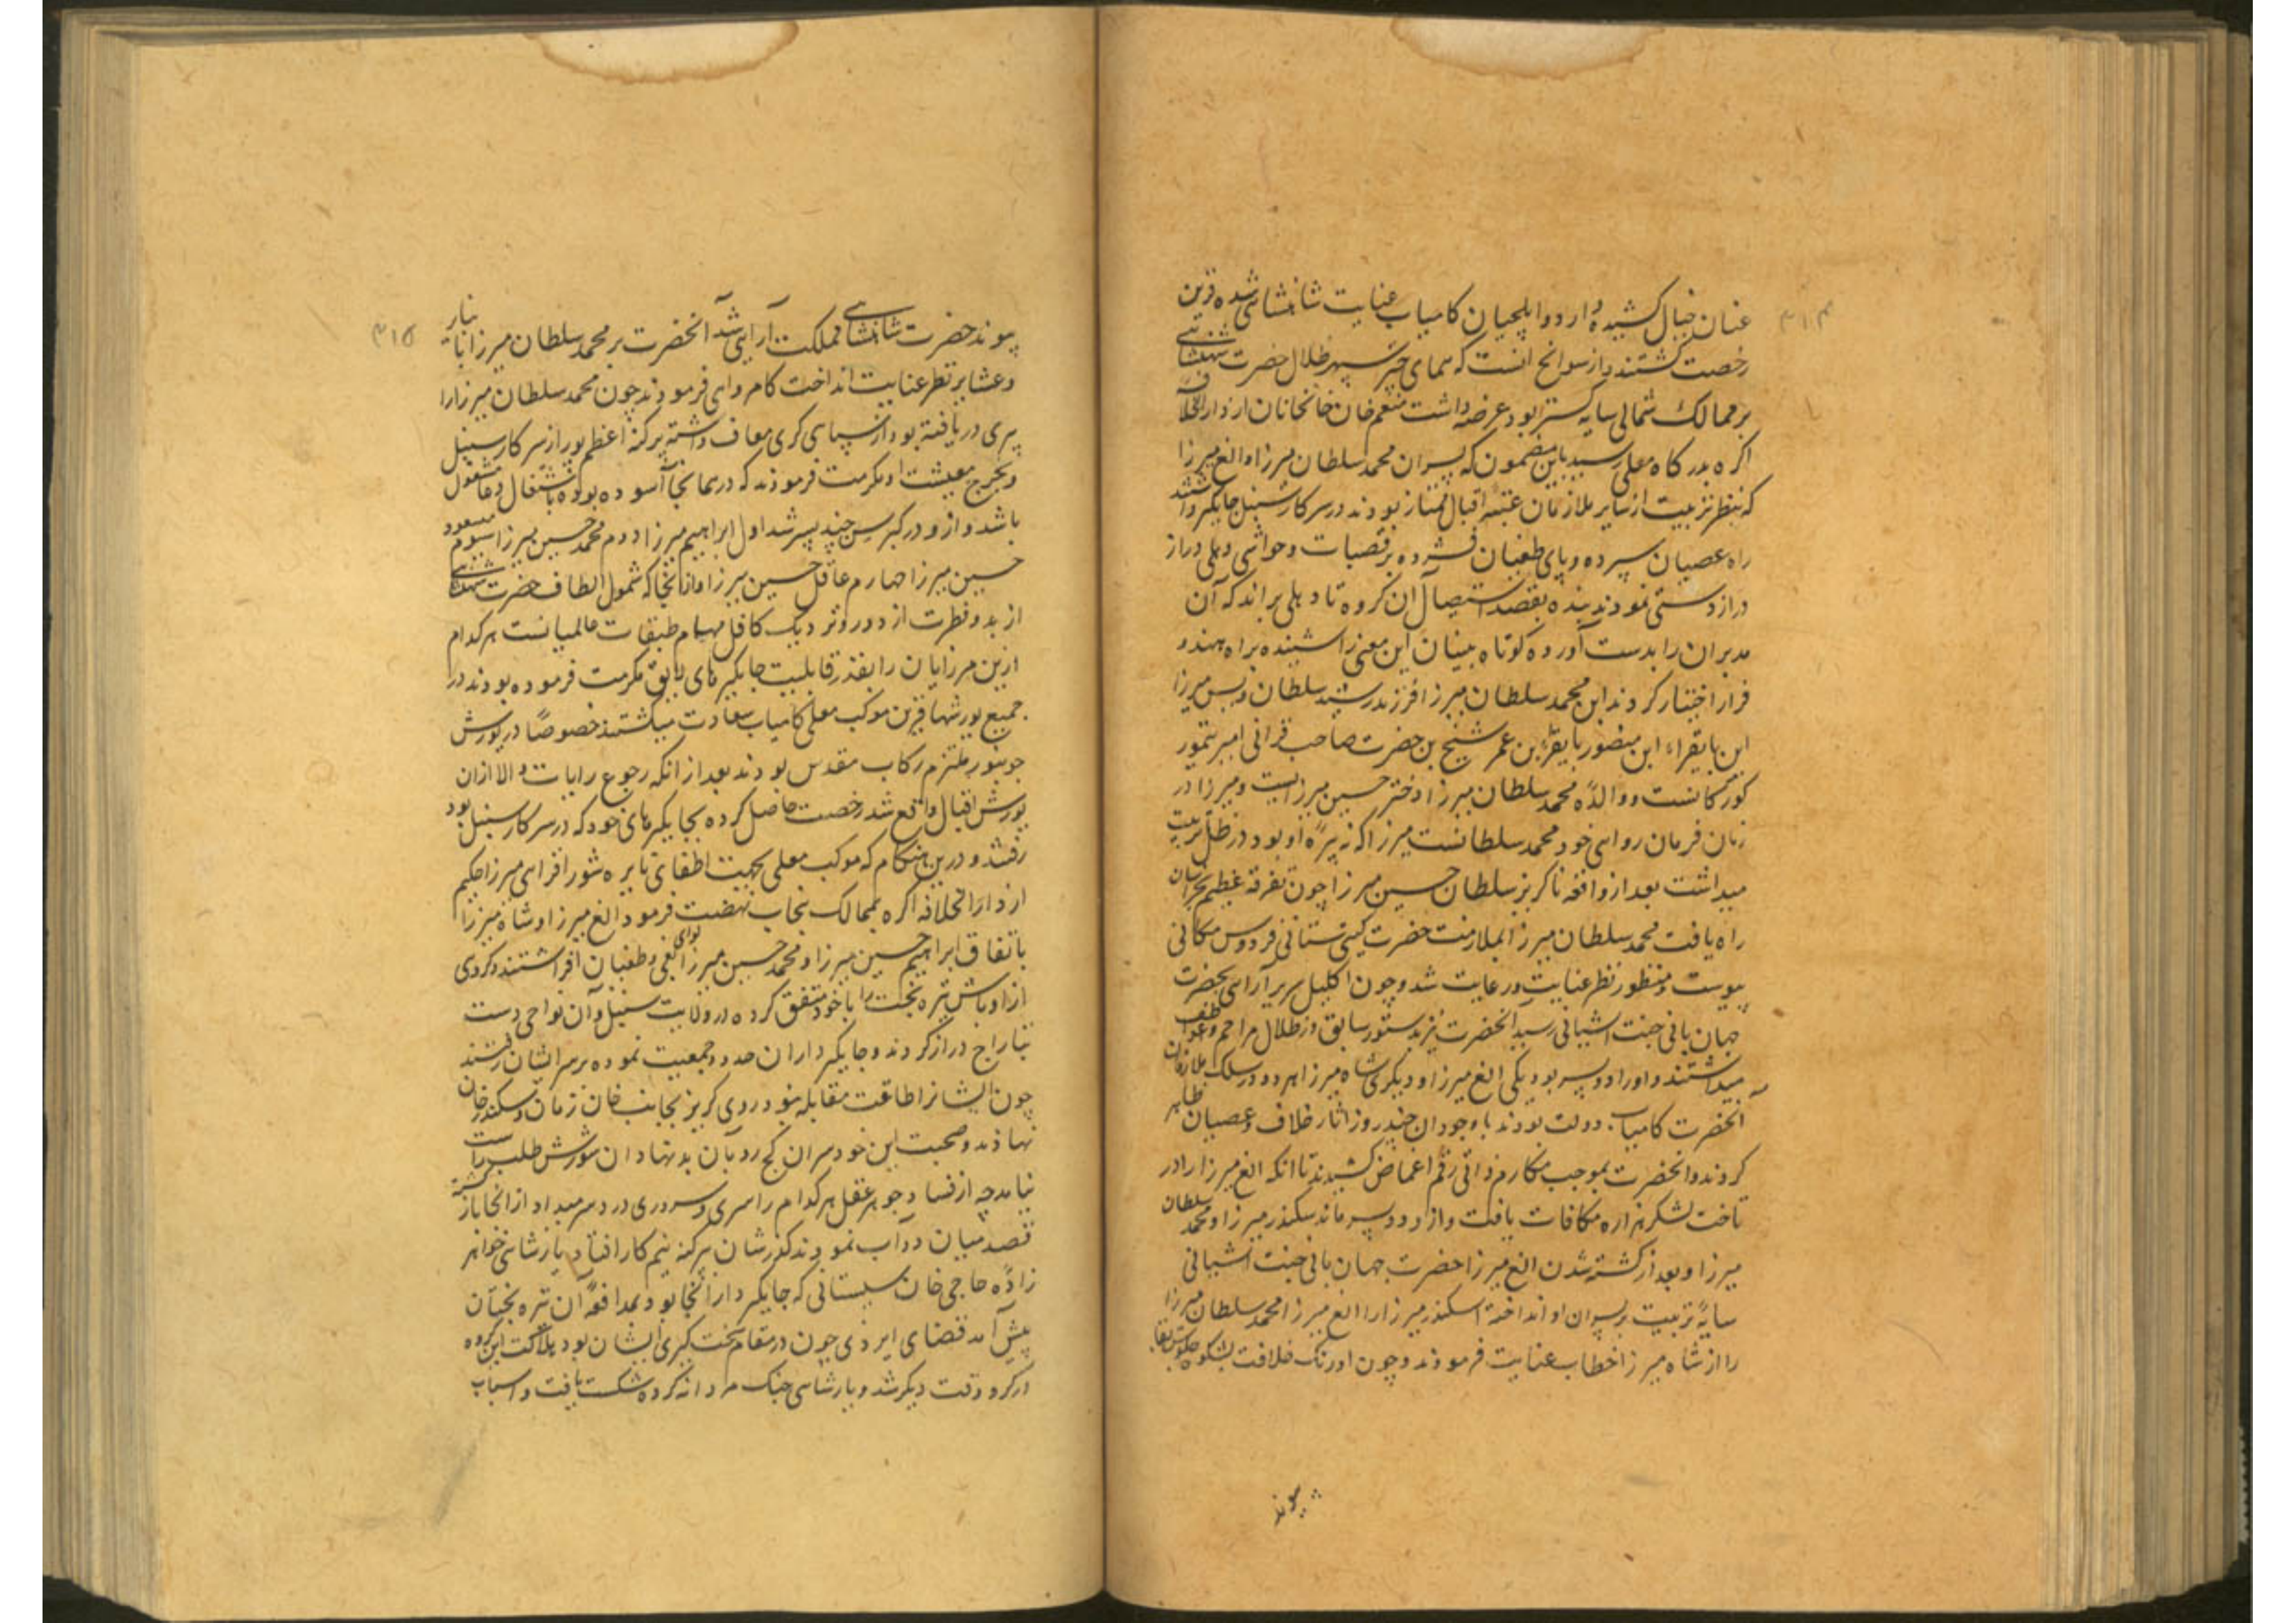 ۳۱۴
عنان خیال کشیده دارد و ایلچیان کامیاب عنایت شاهنشاهی شده قرین
رخصت گشتند و از سوانح انست که همای چتر سپهر ظلال حضرت شاهنشاهی
بر ممالک شمالی سایه گستر بود عرضه داشت منعم خان خانخانان از دارالخلافه
اکره بدرکاه معلی رسید باین مضمون که پسران محمد سلطان میرزا و الغ میرزا
که بنظر تربیت از سایر ملازمان عتبه اقبال ممتاز بودند و در سرکار سنبل جایگیر داشتند
راه عصیان سپرده و پای طغیان فشرده بر قصبات و حواشی دهلی دراز
درازدستی نمودند بنده بقصد استیصال آن کروه تا دهلی براند که آن
مدبران را بدست آورده کوتاه بینان این معنی را شنیده براه مهندو
فرار اختیار کردند این محمد سلطان میرزا فرزند رشید سلطان ویس میرزا
ابن بایقراء ابن منصور بایقراء بن عمر شیخ بن حضرت صاحب قرانی امیر تیمور
کورکانست و والدهٔ محمد سلطان میرزا دختر حسین میرزاست و میرزا در
زمان فرمان روایی خود محمد سلطانست میرزا که نبیرهٔ او بود در ظل تربیت
میداشت بعد از واقعه ناکریز سلطان حسین میرزا چون تفرقه عظیم بخراسان
راه یافت محمد سلطان میرزا بملازمت حضرت کیتی ستانی فردوس مکانی
پیوست و منظور نظر عنایت و رعایت شد و چون اکلیل سریر آرایی بحضرت
جهان بانی جنت اشیانی رسید آنحضرت نیز بدستور سابق در ظلال مراحم و عواطف
میداشتند و او را دو پسر بود یکی الغ میرزا و دیکری شاه میرزا هر دو در سلک ملازمان
انحضرت کامیاب دولت بودند با وجود آن چند روز اثار خلاف و عصیان ظاهر
کردند و انحضرت بموجب مکارم ذاتی رقم اغماض کشیدند تا انکه الغ میرزا را در
تاخت لشکر هزاره مکافات یافت و از او دو پسر ماند سکندر میرزا و محمد سلطان
میرزا و بعد از کشته شدن الغ میرزا حضرت جهان بانی جنت اشیانی
سایهٔ تربیت بر پسران او انداخته اسکندر میرزا را الغ میرزا محمد سلطان میرزا
را از شاه میرزا خطاب عنایت فرمودند و چون اورنک خلافت بشکوه جلوس
پیوند
۳۱۵
پیوند حضرت شاهنشاهی مملکت آرایی شد آنحضرت بر محمد سلطان میرزا با نبایر
و عشایر نظر عنایت انداخت کام روایی فرمودند چون محمد سلطان میرزا را
پیری دریافته بود از سپاهی کری معاف داشته پرکنه اعظم پور از سرکار سنبل
و بخرج معیشت او مکرمت فرمودند که در همانجا آسوده بوده باشتغال دعا مشغول
باشد و از و در کبر سن چند پسر شد اول ابراهیم میرزا دوم محمد حسین میرزا سیوم مسعود
حسین میرزا چهارم عاقل حسین میرزا و از انجا که شمول الطاف حضرت شاهنشاهی
از بدو فطرت از دور و نزدیک کافل مهام طبقات عالمیانست هر کدام
ازین میرزایان را بقدر قابلیت جایگیرهای لایق مکرمت فرموده بودند در
جمیع یورشها قرین موکب معلی کامیاب سعادت میکشتند خصوصاً در یورش
جونپور ملتزم رکاب مقدس بودند بعد از انکه رجوع رایات والا ازان
یورش اقبال واقع شد رخصت حاصل کرده بجایگیرهای خود که در سرکار سنبل بود
رفتند و درین هنکام که موکب معلی بجهت اطفای نایره شورافزایی میرزا حکیم
از دارالخلافه اکره بممالک پنجاب نهضت فرمود الغ میرزا و شاه میرزا
باتفاق ابراهیم حسین میرزا و محمد حسین میرزا لوای بغی و طغیان افراشتند و کروهی
از اوباش تیره بخت را با خود متفق کرده در ولایت سنبل و آن نواحی دست
بتاراج دراز کردند و جایگیرداران حدود جمعیت نموده بر سر ایشان رفتند
چون ایشانرا طاقت مقابله نبود روی کریز بجانب خان زمان و سکندر خان
نهادند و صحبت این خودسران کج رو بآن بدنهادان شورش طلب راست
نیامد چه از فساد جوهر عقل هر کدام را سری و سروری در سر میداد از انجا باز کشته
قصد میان دوآب نمودند کذرشان بپرکنه نیم کار افتاد یارشاهی خواهر
زادهٔ حاجی خان سیستانی که جایگیردار آنجا بود بمدافعهٔ آن تیره بختان
پیش آمد قضای ایزدی چون در مقام سخت کیری ایشان بود هلاکت این کروه
در کرو وقت دیکر شد و یارشاهی جنک مردانه کرده شکست یافت و اسباب